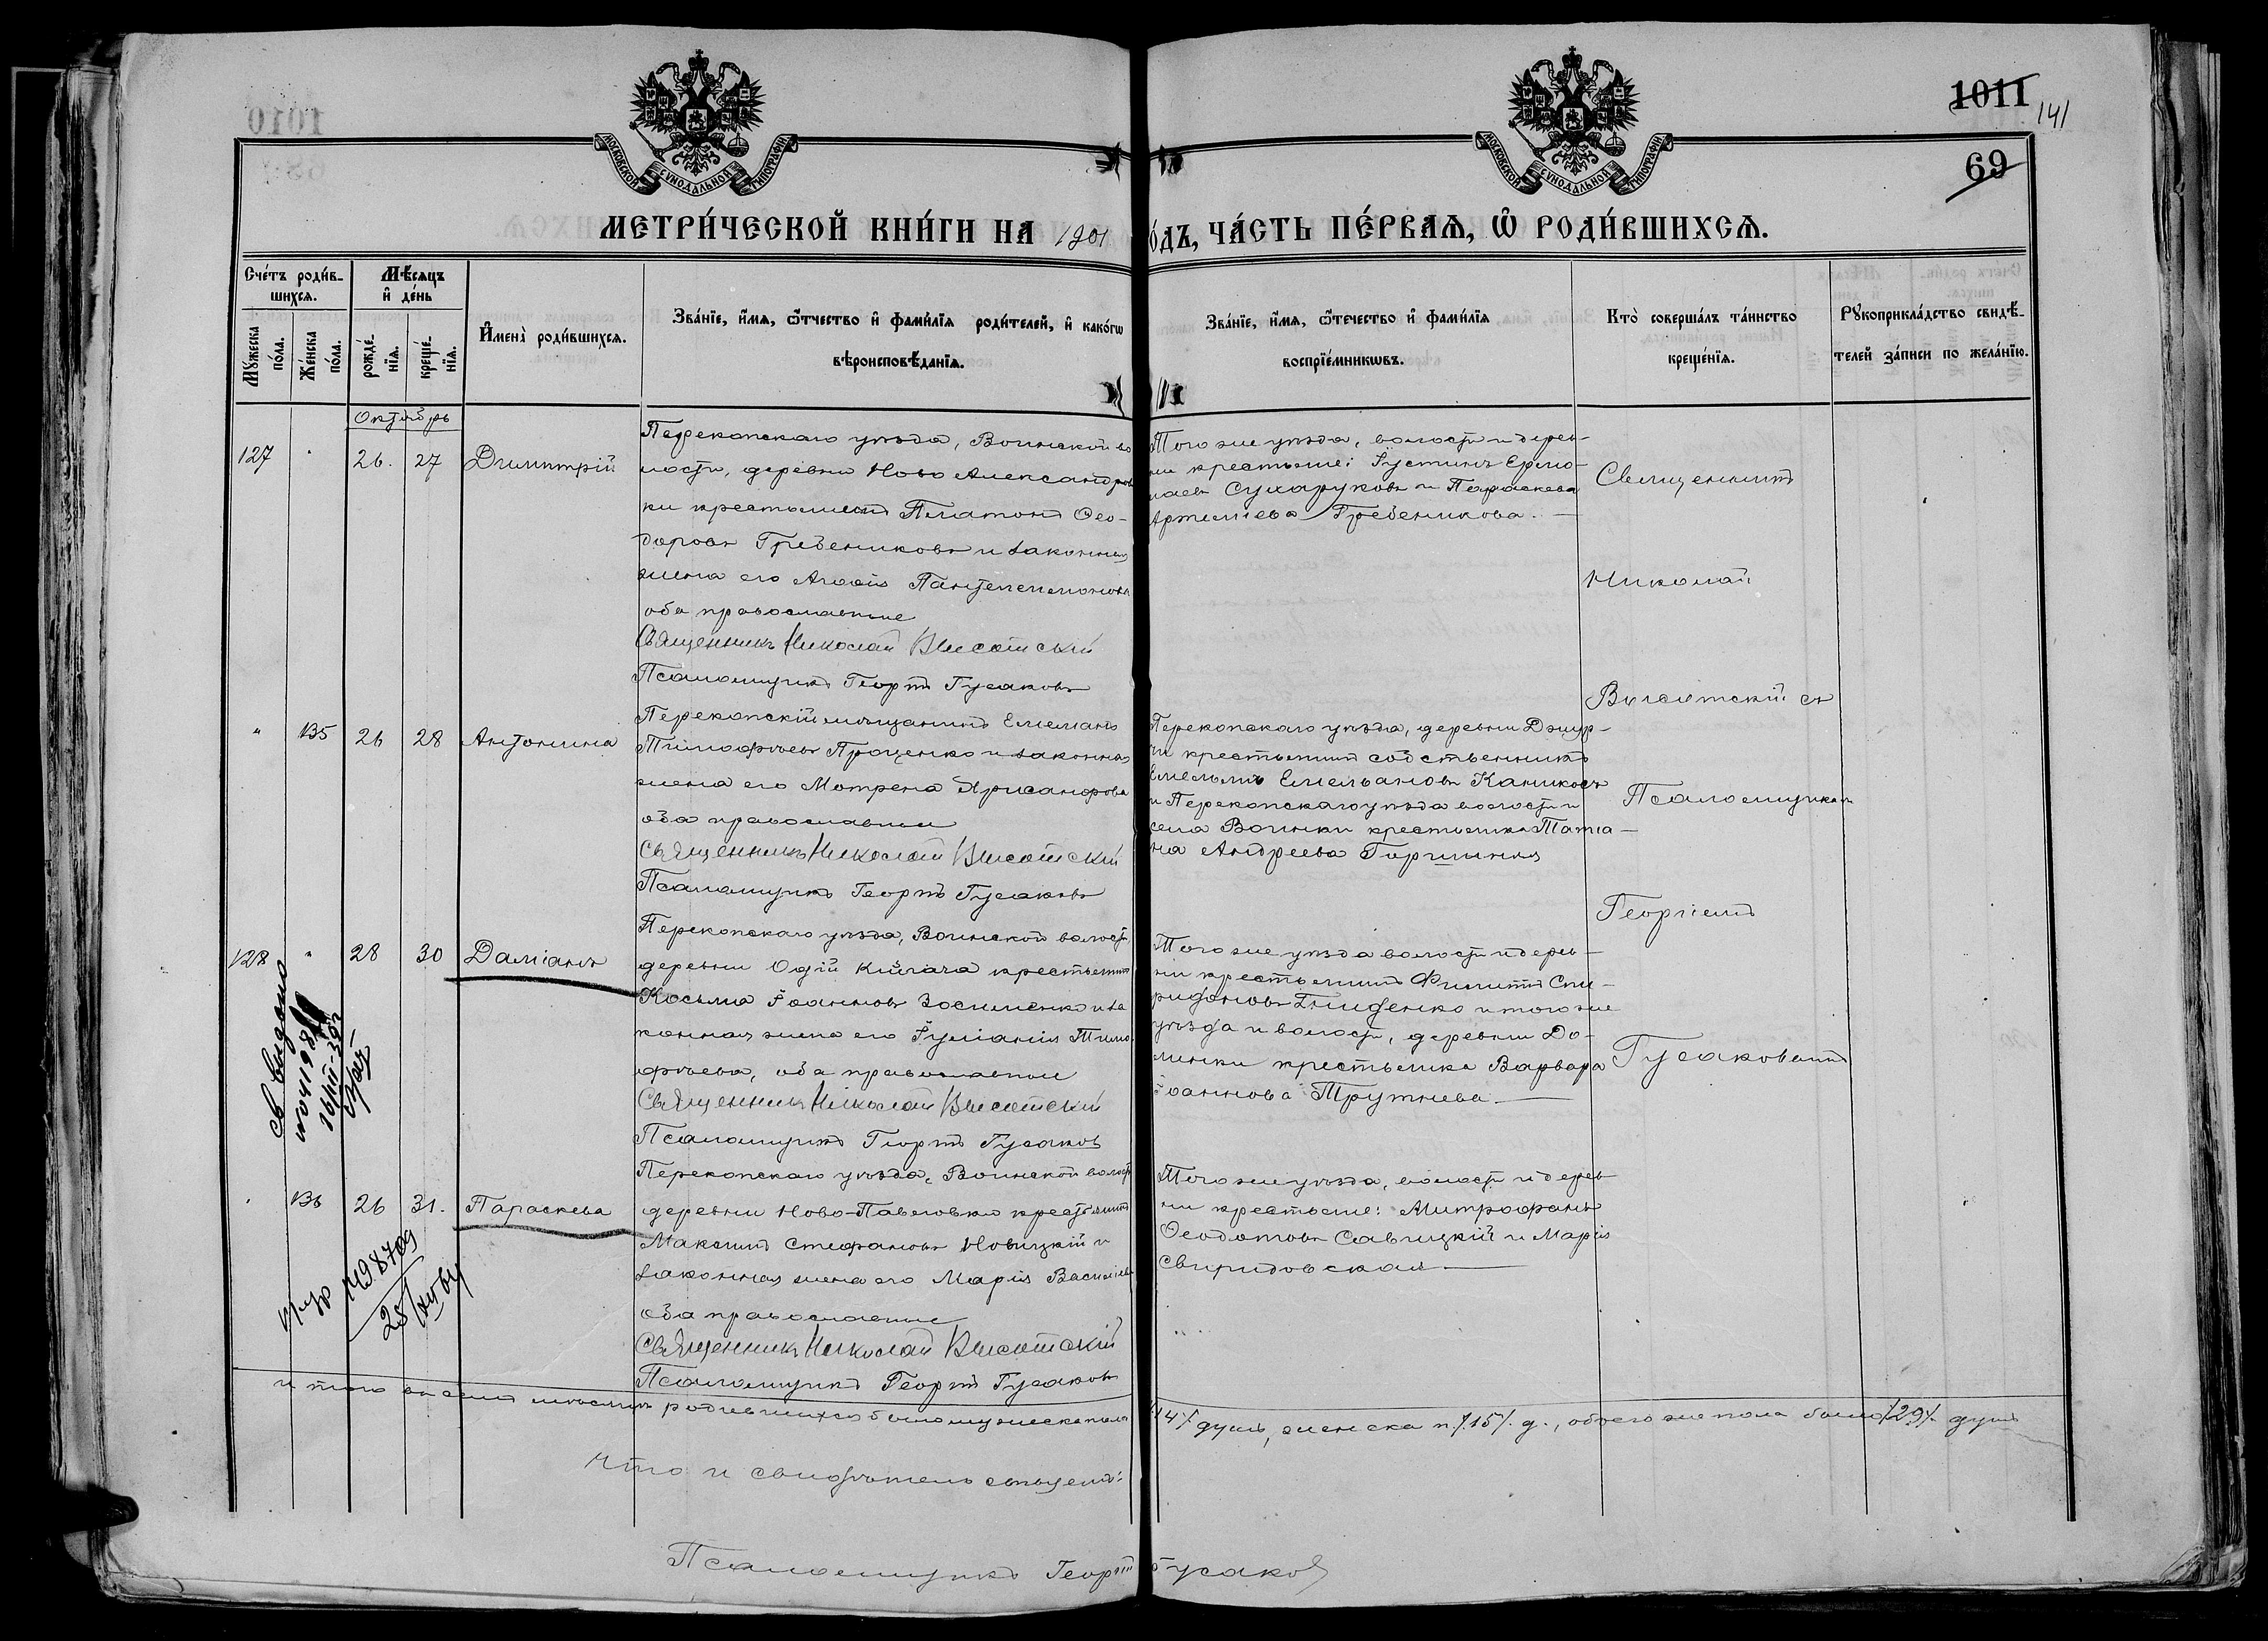 1011
141
69
МОСКОВСКОЙ СѴНОДАЛЬНОЙ ТИПОГРАФІИ.
МОСКОВСКОЙ СѴНОДАЛЬНОЙ ТИПОГРАФІИ.
МЕТРИ́ЧЕСКОЙ КНИ́ГИ НА 1901
О́ДЪ, ЧА́СТЬ ПЕ́РВАѦ, Ѿ РОДИ́ВШИХСѦ.
Сче́тъ роди́в-
шихсѧ.
Мѣ́сяцъ
и҆ де́нь
Мꙋ́жеска по́ла.
Же́нска по́ла.
рожде́-нїѧ.
креще́-нїѧ.
И҆мена̀ роди́вшихсѧ.
Зва́нїе, и҆́мѧ, ѻ҆́тчество и҆ фами́лїѧ роди́телей, и҆ како́гѡ
вѣроисповѣ́данїѧ.
Зва́нїе, и҆́мѧ, ѻ҆́течество и҆ фами́лїѧ
воспрїе́мникѡвъ.
Кто̀ соверша́лъ та́инство
креще́нїѧ.
Рꙋкоприкла́дство свидѣ́-
телей за́писи по жела́нїю.
Октябрь
127 " 26. 27 Димитрій
Перекопскаго уѣзда, Воинской во
лости, деревни Ново Александров
ки крестьянинъ Платонъ Ѳео-
доровъ Гребениковъ и законная
жена его Агаѳія Пантелеимонова
оба православные
Священникъ Николай Высотскій
Псаломщикъ Георгій Гусаковъ
Того же уѣзда, волости и дерев-
ни крестьяне: Іустинъ Ермо-
лаевъ Сухоруковъ и Параскева
Артеміева Гребеникова.
Священникъ
Николай
Высотскій съ
Псаломщикомъ
Георгіемъ
Гусаковымъ
" 135 26 28 Антонина
Перекопскій мѣщанинъ Емельянъ
Тимофѣевъ Проценко и законная
жена его Мотрена Хрисанфова
оба православные
Священникъ Николай Высотскій
Псаломщикъ Георгій Гусаковъ
Перекопскаго уѣзда, деревни Джур-
чи крестьянинъ собственникъ
Емельянъ Емельяновъ
и Перекопскаго уѣзда волости и
села Воинки крестьянка Татіа-
на Андреева
128 " 28 30 Даміанъ
Перекопскаго уѣзда, Воинской волости
деревни крестьянинъ
Косьма Іоанновъ Зосименко и за
конная жена его Іуліанія Тимо
фѣева, оба православные
Священникъ Николай Высотскій
Псаломщикъ Георгій Гусаковъ
Того же уѣзда волости и дерев-
ни крестьянинъ Филиппъ Спи-
ридоновъ и того же
уѣзда и волости, деревни До-
линки крестьянка Варвара
Іоаннова Трутнева
" 136 26 31. Параскева
Перекопскаго уѣзда, Воинской волости
деревни Ново-Павловки крестьянинъ
Максимъ Стефановъ Новицкій и
законная жена его Марія Василіева
оба православные
Священникъ Николай Высотскій
Псаломщикъ Георгій Гусаковъ
Того же уѣзда, волости и дерев-
ни крестьяне: Митрофанъ
Ѳеодотовъ Савицкій и Марія
Свиридовская
Итого въ семъ мѣсяцѣ родившихся было мужеска пола
/14/ душъ, женска п. /15/. д., обоего же пола было /29/. душъ
Что и свидѣтельствуемъ:
Псаломщикъ Георгій Гусаковъ